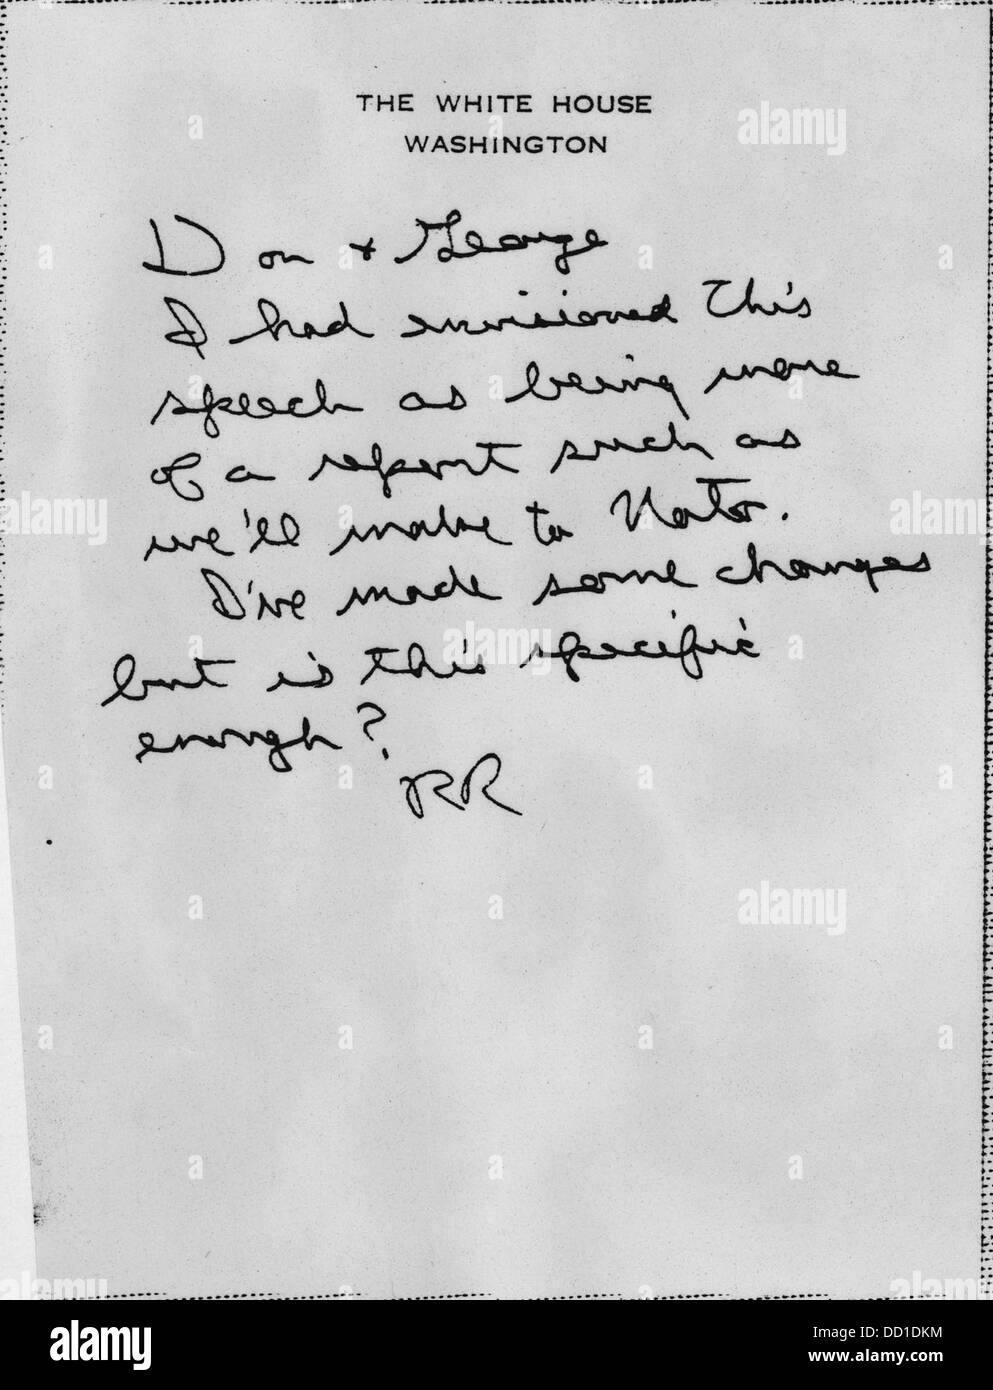 THE WHITE HOUSE
WASHINGTON
Don + George
I had envisioned this
speech as being more
of a report such as
we'll make to Nato.
I've made some changes
but is this specific
enough?
RR
alamy
Image ID: DD1DKM
www.alamy.com